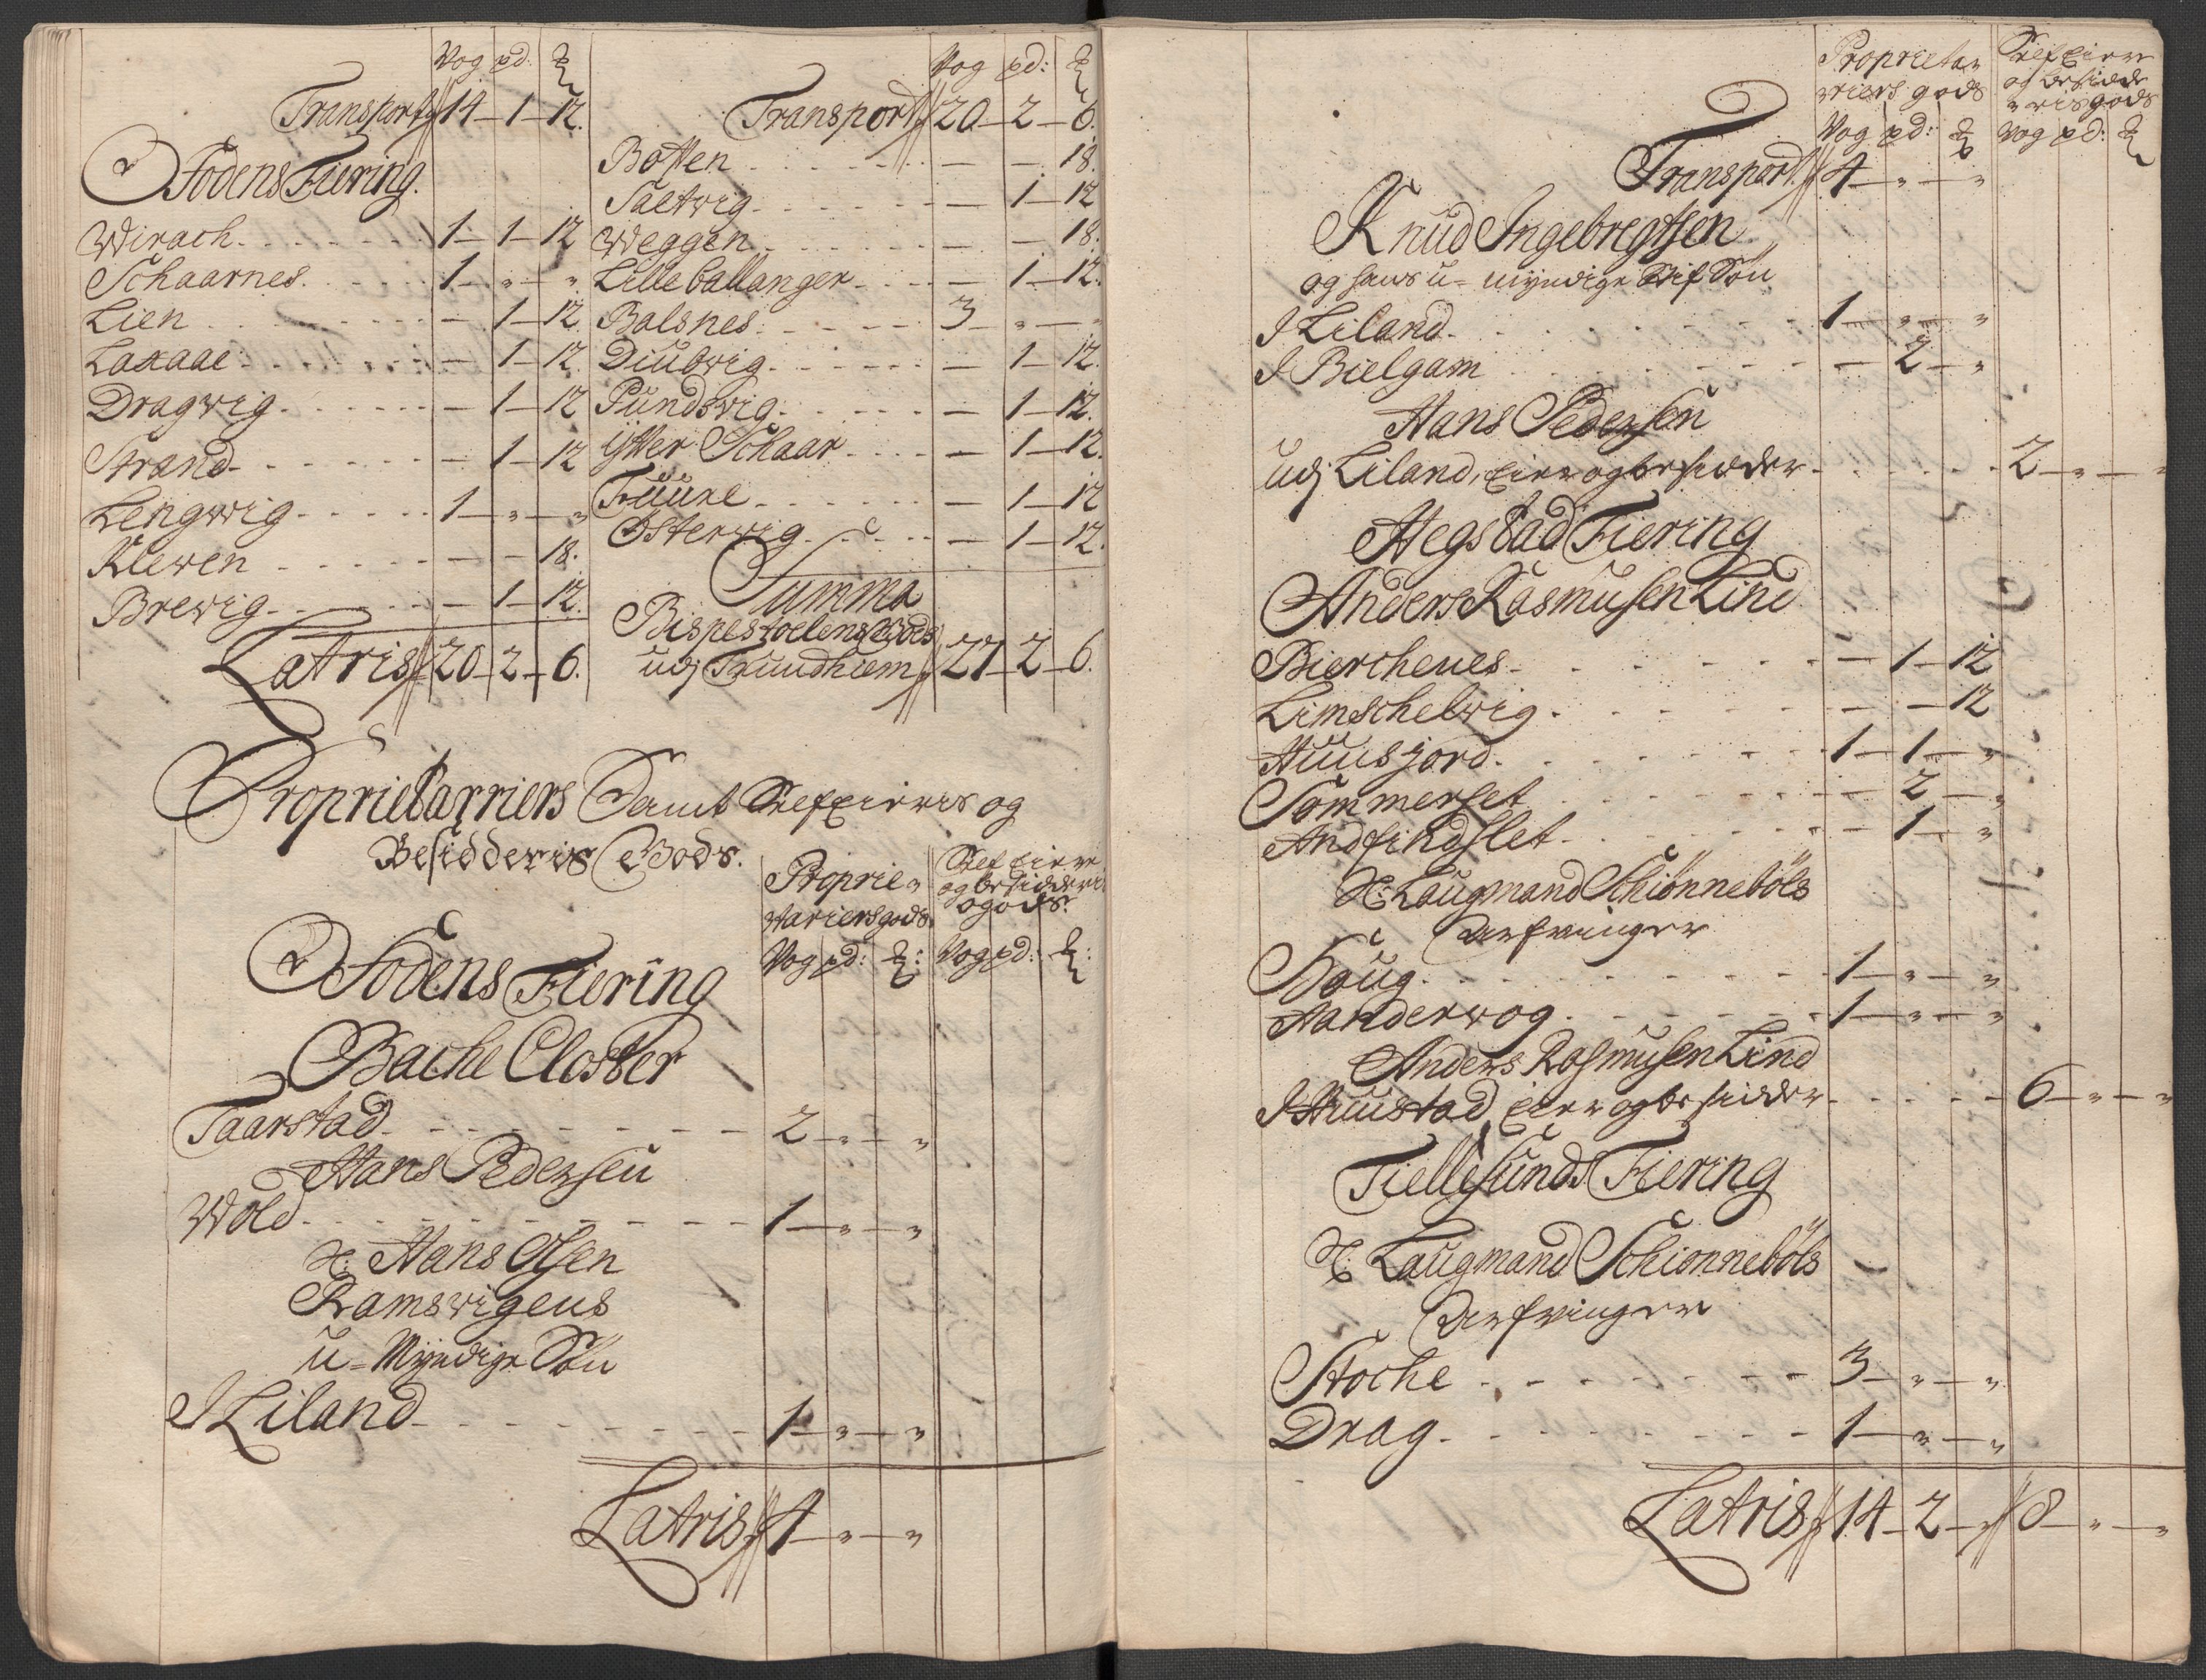 Vog pd: ℔
Transport 14 - 1 - 12.
Ofodens Fiering.
Wirach. 1 - 1 - 12
Schaarnes. 1 - „ - „
Lien - 1 - 12.
Laxaae - 1 - 12.
Dragwig. - 1 - 12
Strand - 1 - 12
Lengwig 1 - „ - „
Klewen - - 18.
Brewig - 1 - 12.
Latris 20 - 2 - 6.
Vog pd: ℔
Transport 20 - 2 - 6.
Botten - - 18.
Saetwig - 1 - 12
Weggen - - 18.
Lille ballanger - 1 - 12.
Balsnes: 3 - „ - „
Diubwig - 1 - 12.
Pundswig - 1 - 12.
ÿtter Schaar - 1 - 12.
Fuure - 1 - 12
Osterwig - 1 - 12.
Summa
Bispestoelens Gods
udj Trundhiem 27 - 2 - 6.
Proprietarriers Samt Self Eiernis og
Besidderis Gods.
Proprie„
tariersgods.
Vog pd: ℔:
Self Eierne
og besidderis
gods:
Vog pd: ℔:
Ofodens Fiering
Bache Closter
Taarstad 2 - „ - „
Hans Pedersen
Wold 1 - „ - „
H: Hans Olsen
Ramswigens
u-Mÿndige Søn
I Liland 1 - „ - „
Latris 4 - „ - „
Proprieta„
riers gods
Vog pd: ℔
Self Eierne
og besidde„
ris gods
Vog pd: ℔
Transport 4 - „ - „
Knud Ingebregtsen
og hans u-mÿndige Stif Søn
I Liland 1 - „ - „
I Bielgam - 2 - „
Hans Pedersen
udj Liland, Eier og besidder 2 - „ - „
Hegstad Fiering
Anders Rasmusen Lind
Bierchenes - 1 - 12
Limschelwig - - 12
Huusjord. 1 - 1 - „
Sommerset - 2 - „
Andfindslet - 1 - „
H: Laugmand Schiönneböls
Arfvinger
Houg 1 - „ - „
Handerwog 1 - „ - „
Anders Rasmusen Lind
I Huustad Eier og besidder 6 - „ - „
Tiellesunds Fiering
H: Laugmand Schionneböls
Arfvinger
Stoche 3 - „ - „
Drag 1 - „ - „
Latris 14 - 2 - „ 8 - „ - „